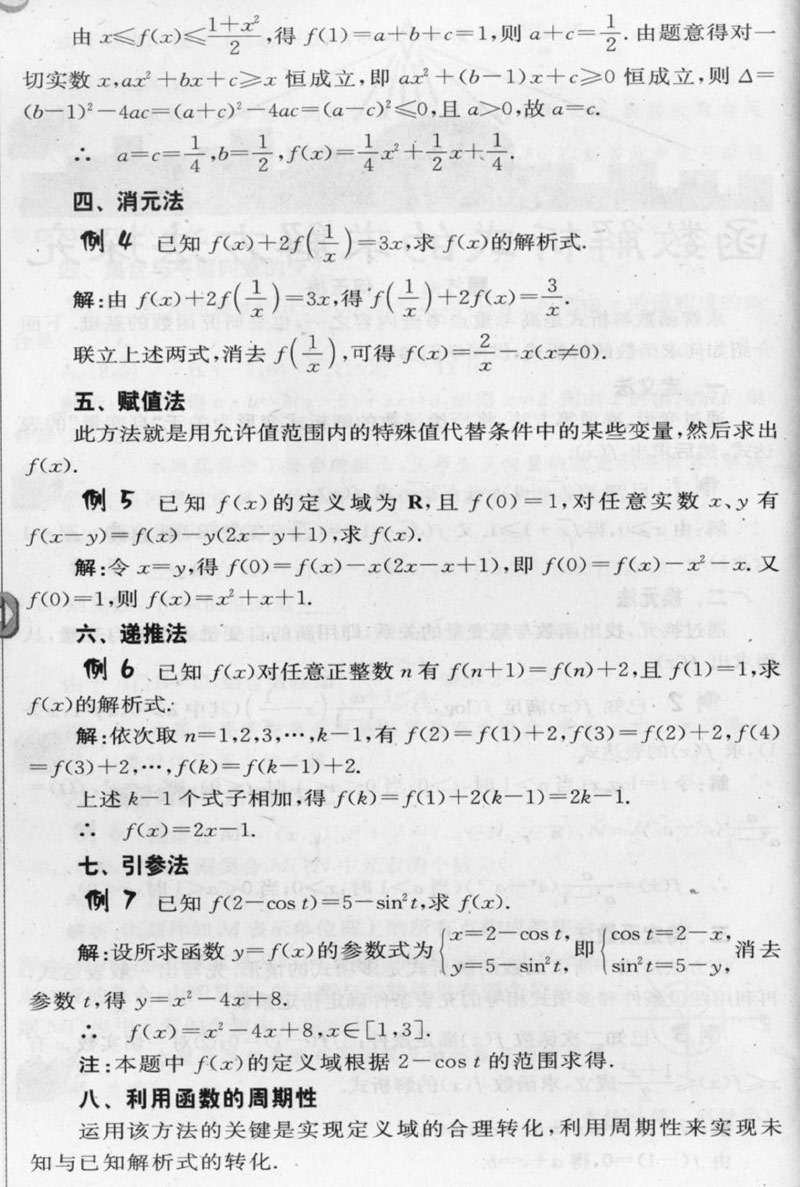 由 x≤f(x)≤(1+x²)/2,得 f(1)=a+b+c=1,则 a+c=1/2.由题意得对一
切实数 x,ax²+bx+c≥x 恒成立,即 ax²+(b-1)x+c≥0 恒成立,则 Δ=
(b-1)²-4ac=(a+c)²-4ac=(a-c)²≤0,且 a>0,故 a=c.
∴ a=c=1/4,b=1/2,f(x)=1/4x²+1/2x+1/4.
四、消元法
例 4 已知 f(x)+2f(1/x)=3x,求 f(x)的解析式.
解:由 f(x)+2f(1/x)=3x,得 f(1/x)+2f(x)=3/x.
联立上述两式,消去 f(1/x),可得 f(x)=2/x-x(x≠0).
五、赋值法
此方法就是用允许值范围内的特殊值代替条件中的某些变量,然后求出
f(x).
例 5 已知 f(x)的定义域为 R,且 f(0)=1,对任意实数 x、y 有
f(x-y)=f(x)-y(2x-y+1),求 f(x).
解:令 x=y,得 f(0)=f(x)-x(2x-x+1),即 f(0)=f(x)-x²-x.又
f(0)=1,则 f(x)=x²+x+1.
六、递推法
例 6 已知 f(x)对任意正整数 n 有 f(n+1)=f(n)+2,且 f(1)=1,求
f(x)的解析式.
解:依次取 n=1,2,3,…,k-1,有 f(2)=f(1)+2,f(3)=f(2)+2,f(4)
=f(3)+2,…,f(k)=f(k-1)+2.
上述 k-1 个式子相加,得 f(k)=f(1)+2(k-1)=2k-1.
∴ f(x)=2x-1.
七、引参法
例 7 已知 f(2-cos t)=5-sin²t,求 f(x).
解:设所求函数 y=f(x)的参数式为{x=2-cos t, y=5-sin²t, 即{cos t=2-x, sin²t=5-y, 消去
参数 t,得 y=x²-4x+8.
∴ f(x)=x²-4x+8,x∈[1,3].
注:本题中 f(x)的定义域根据 2-cos t 的范围求得.
八、利用函数的周期性
运用该方法的关键是实现定义域的合理转化,利用周期性来实现未
知与已知解析式的转化.